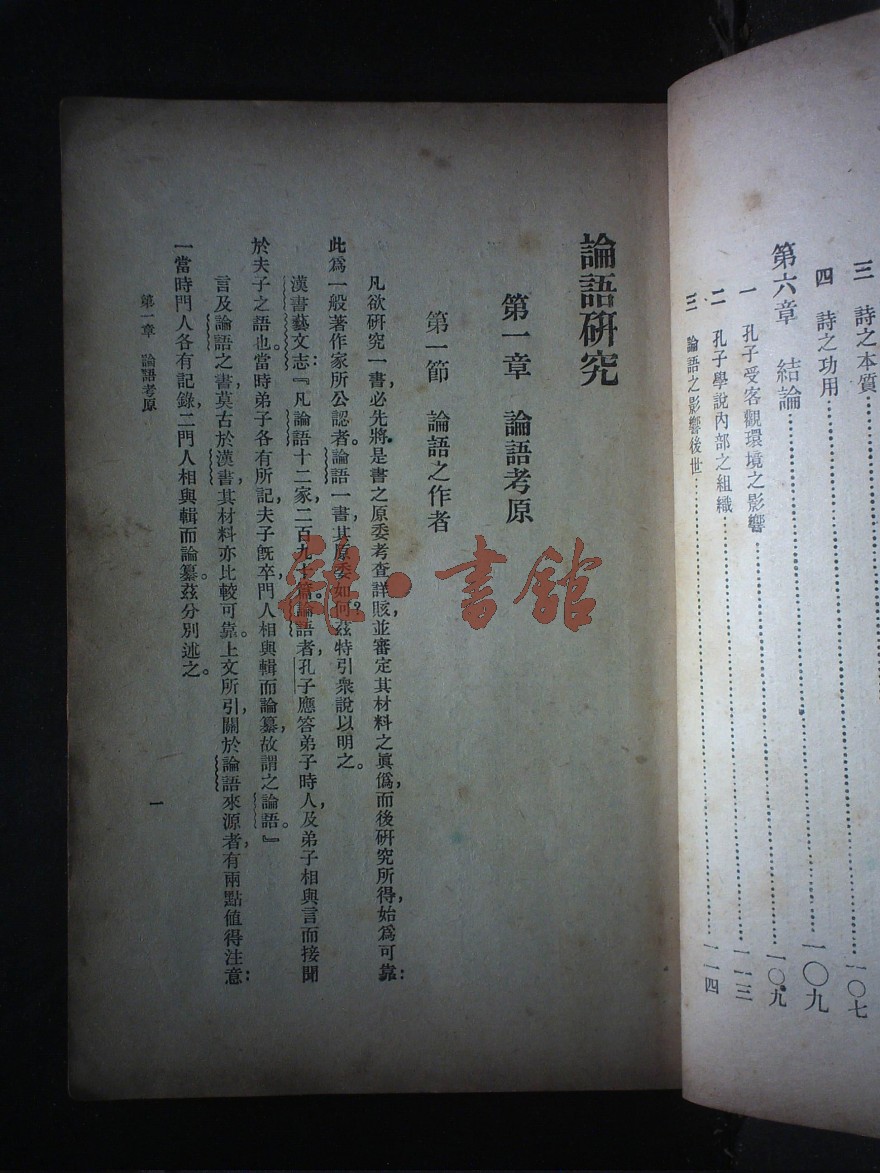 三　詩之本質…………一〇七
四　詩之功用
第六章　結論…………一〇九
一　孔子受客觀環境之影響…………一〇九
二　孔子學說內部之組織…………一一三
三　論語之影響後世…………一一四
論語研究
第一章　論語考原
第一節　論語之作者
凡欲研究一書，必先將是書之原委考查詳賅，並審定其材料之眞僞，而後研究所得，始爲可靠：
此爲一般著作家所公認者。論語一書，其原委如何？茲特引衆說以明之。
漢書藝文志：『凡論語十二家，二百九十篇。論語者，孔子應答弟子時人，及弟子相與言而接聞
於夫子之語也。當時弟子各有所記，夫子旣卒，門人相與輯而論纂，故謂之論語。』
言及論語之書，莫古於漢書，其材料亦比較可靠。上文所引，關於論語來源者，有兩點値得注意：
一當時門人各有記錄，二門人相與輯而論纂。茲分別述之。
第一章　論語考原
一
雜·書館